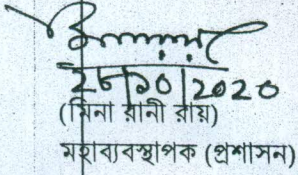 ২৮/১০/২০২০
(মিনা রানী রায়)
মহাব্যবস্থাপক (প্রশাসন)